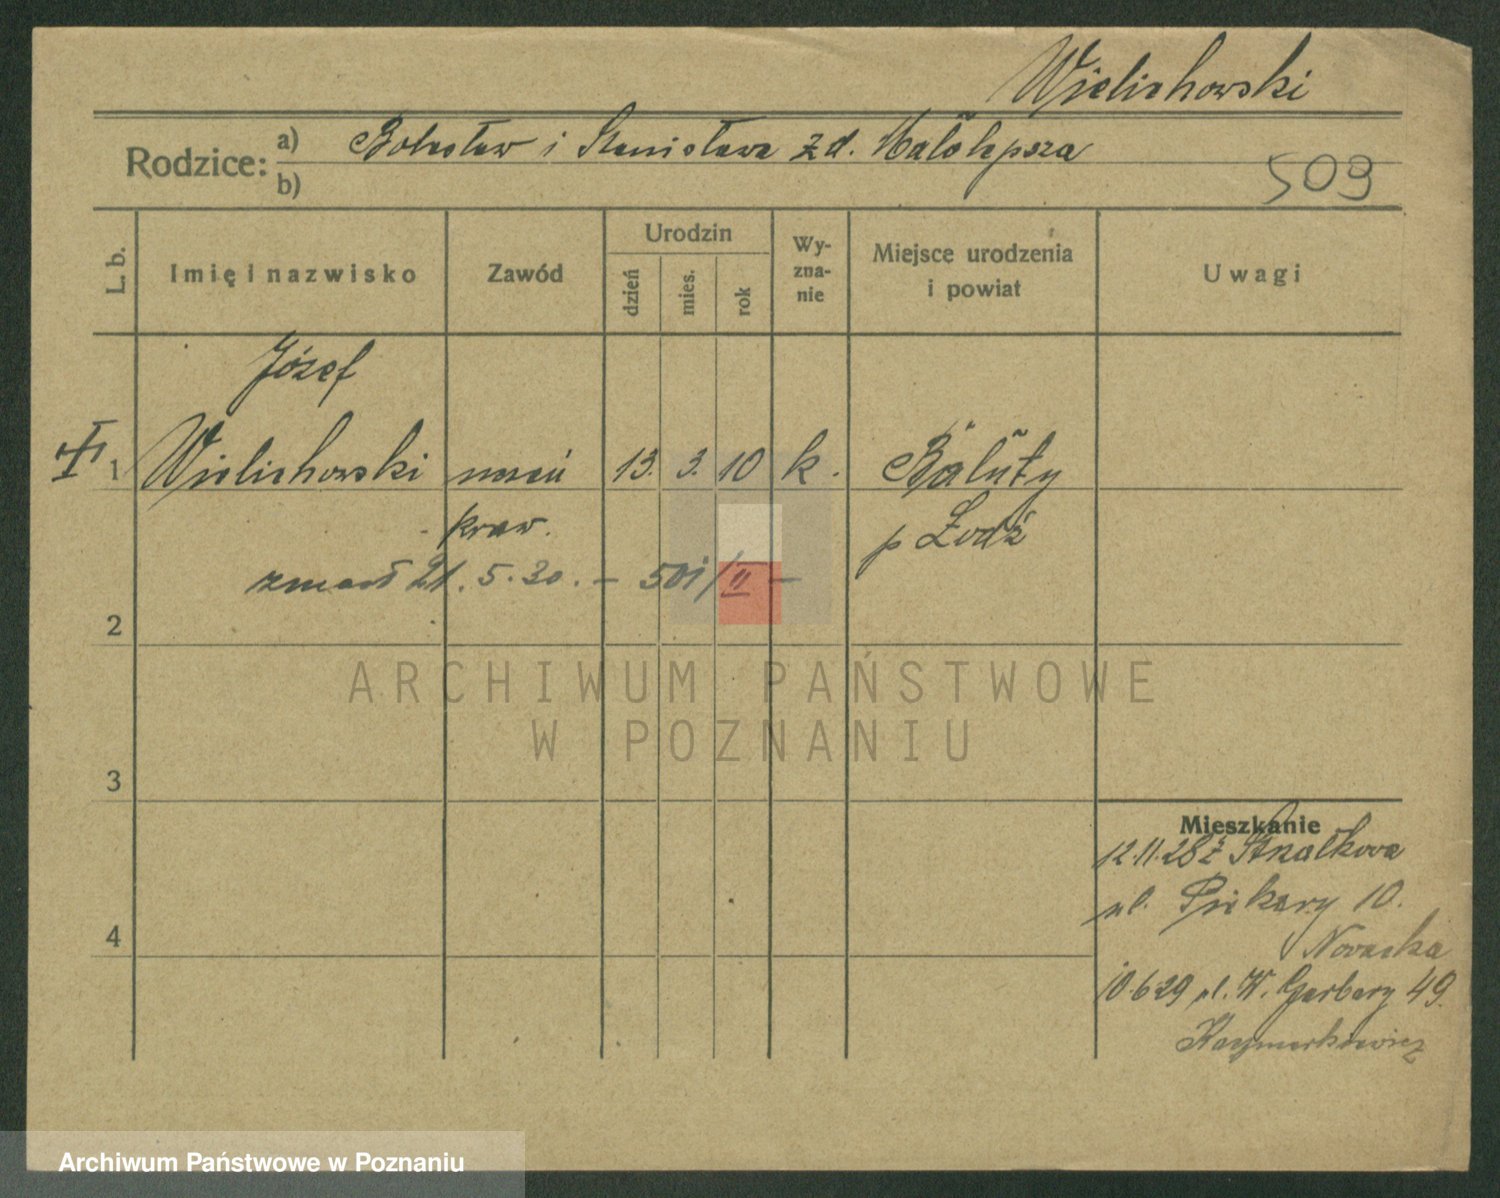 Wielichowski
Rodzice: a) Bolesław i Stanisława z d. Małolepsza
b)
509
L. b.
Imię i nazwisko
Zawód
Urodzin
dzień
mies.
rok
Wy-
zna-
nie
Miejsce urodzenia
i powiat
Uwagi
Józef
1 Wielichowski uczeń 13. 3. 10 k. Bałuty
kraw. p Łodź
zmarł 21. 5. 30. – 501/II –
2
ARCHIWUM PAŃSTWOWE
W POZNANIU
3
Mieszkanie
12.11.28 z Strzałkowa
ul. Piekary 10.
Nowacka
4
10.6.29 ul. W. Garbary 49.
Kaczmarkiewicz
Archiwum Państwowe w Poznaniu